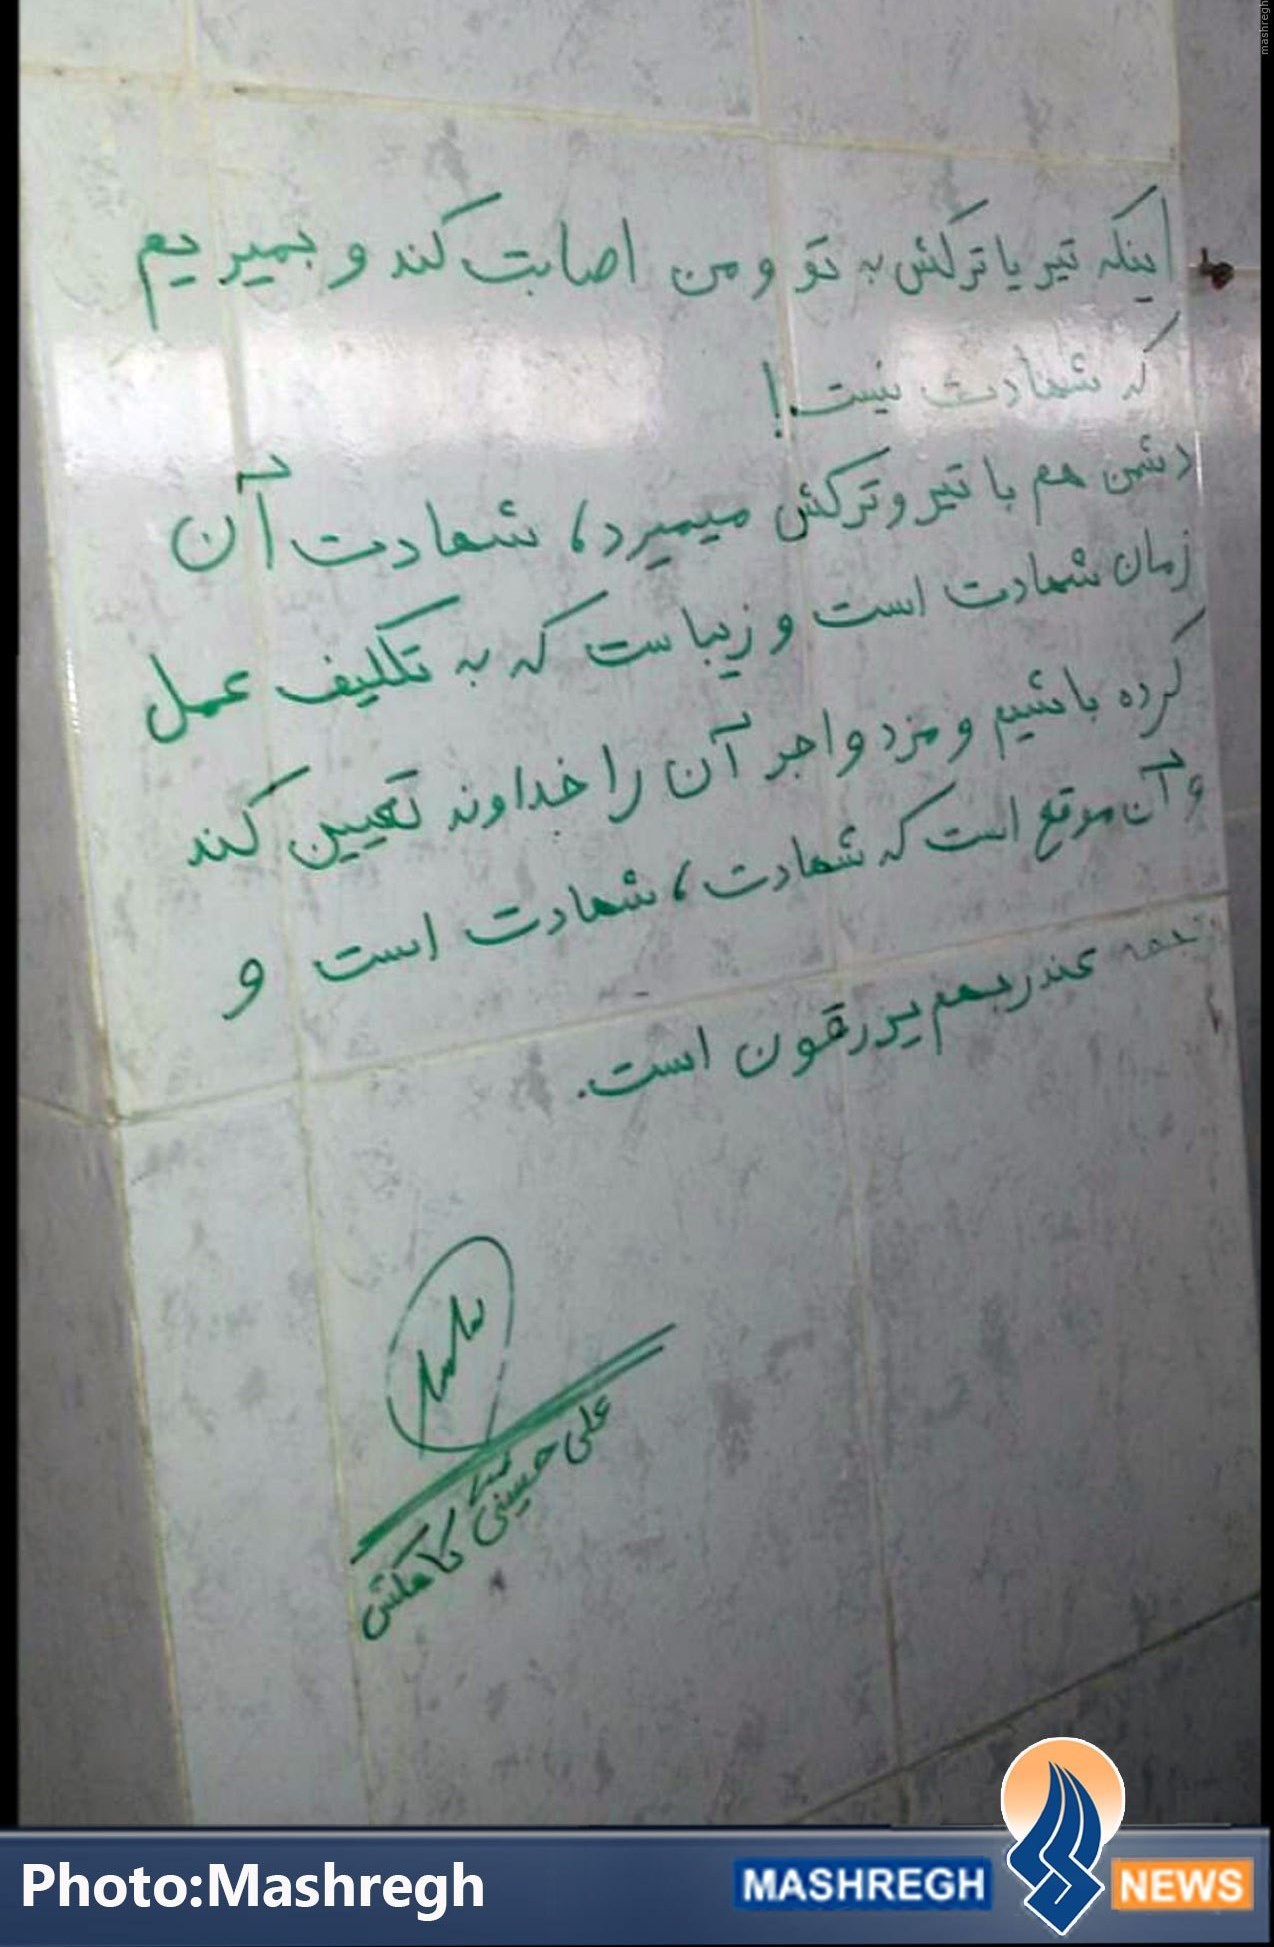 mashregh
اینکه تیر یا ترکش به تو و من اصابت کند و بمیریم
که شهادت نیست!
دشمن هم با تیر و ترکش میمیرد، شهادت آن
زمان شهادت است و زیباست که به تکلیف عمل
کرده باشیم و مزد و اجر آن را خداوند تعیین کند
و آن موقع است که شهادت، شهادت است و
عند ربهم یرزقون است.
علی حسینی کاهکش
Photo:Mashregh
MASHREGH NEWS